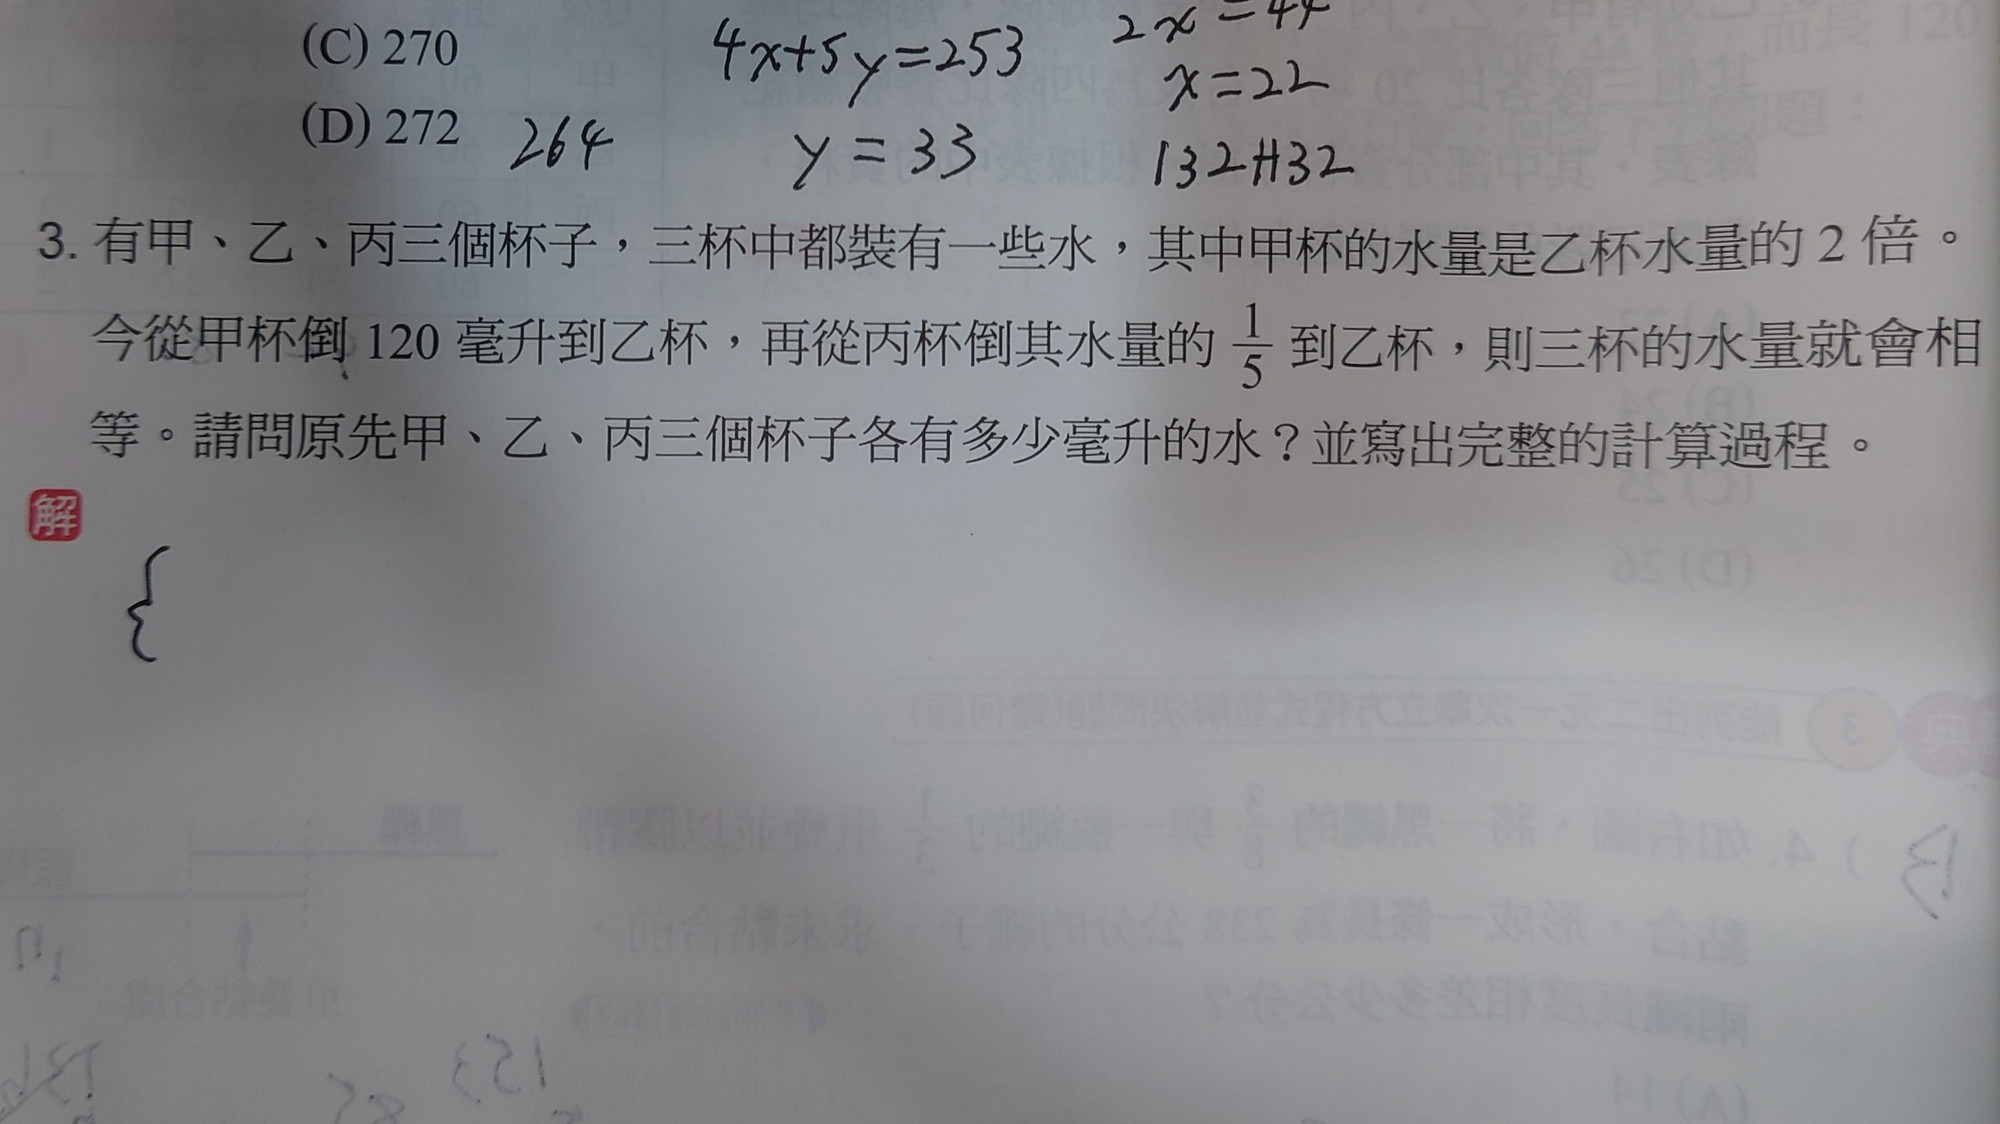 (C) 270 4x+5y=253 2x=44
x=22
(D) 272 264 y=33 132+132
3. 有甲、乙、丙三個杯子，三杯中都裝有一些水，其中甲杯的水量是乙杯水量的 2 倍。
今從甲杯倒 120 毫升到乙杯，再從丙杯倒其水量的 1/5 到乙杯，則三杯的水量就會相
等。請問原先甲、乙、丙三個杯子各有多少毫升的水？並寫出完整的計算過程。
解
{